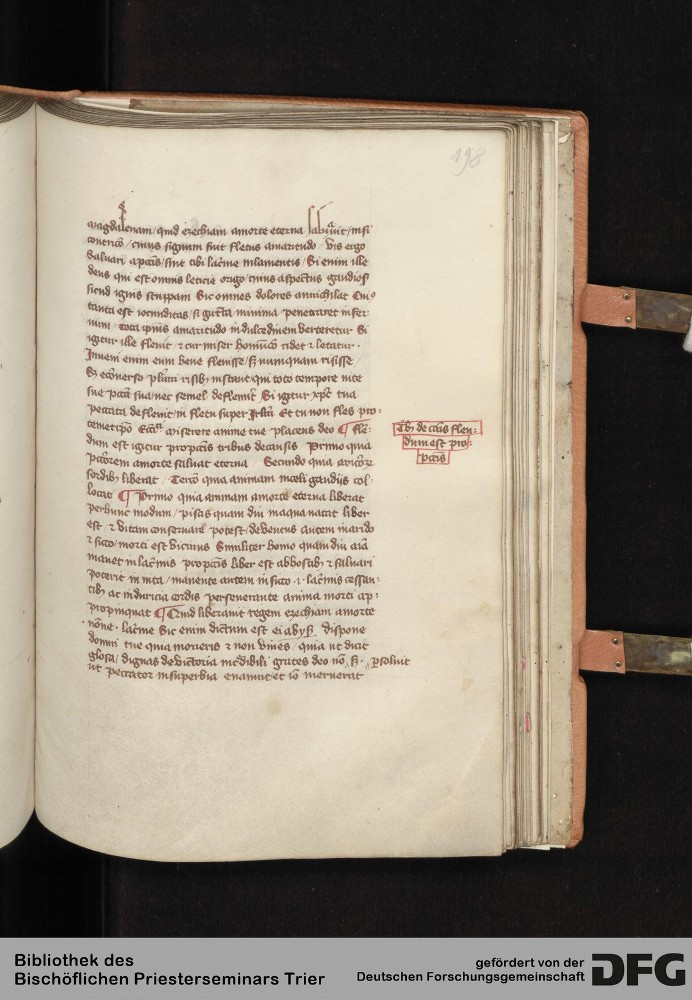 198
magdalenam / quid ezechiam a morte eterna saluauit / nisi
cuius signum fuit fletus amaritudo / vis ergo
saluari a pctis / sint tibi lacrime in lamentis / Si enim ille
deus qui est omnis leticie origo / cuius aspectus
sicud ignis stuppam Sic omnes dolores annichilat Cui9
tanta est iocunditas / si gutta minima penetraret infer
num / tota ipsius amaritudo in dulcedinem verteretur Si
igitur ille fleuit et cur miser ridet et letatur ·
Inueni enim eum bene fleuisse / sed numquam risisse /
instant / qui toto tempore vite
sue pctm suum nec semel defleuit Si igitur xpc tua
peccata defleuit / in fletu super Et tu non fles pro:
miserere anime tue placens deo ¶ flen:
dum est igitur pro pctis tribus de causis Primo quia
pctorem a morte saluat eterna / Secundo quia
sordibus liberat / Tercio quia animam in celi gaudijs col:
locat ¶ Primo quia animam a morte eterna liberat
per hunc modum / piscis quam diu in aqua natat liber
est / et vitam conseruare potest / deuenCus autem in arido
et sicco / morti est vicinus Similiter homo quam diu
manet in lacrimis pro pctis liber est ab hostibus et saluari
poterit in vita / manente autem in sicco .i. lacrimis cessan:
tibus ac in duricia cordis perseuerante anima morti ap:
propinquat ¶ Quid liberauit regem ezechiam a morte
· nonne · lacrime Sic enim dictum est ei dispone
domui tue quia morieris et non viues / quia ut dicit
glosa / dignas de victoria incredibili grates deo non · psoluit
ut peccator in superbia et meruerat
de causis flen:
dum est pro:
pctis
Bibliothek des
Bischöflichen Priesterseminars Trier
gefördert von der
Deutschen Forschungsgemeinschaft
DFG